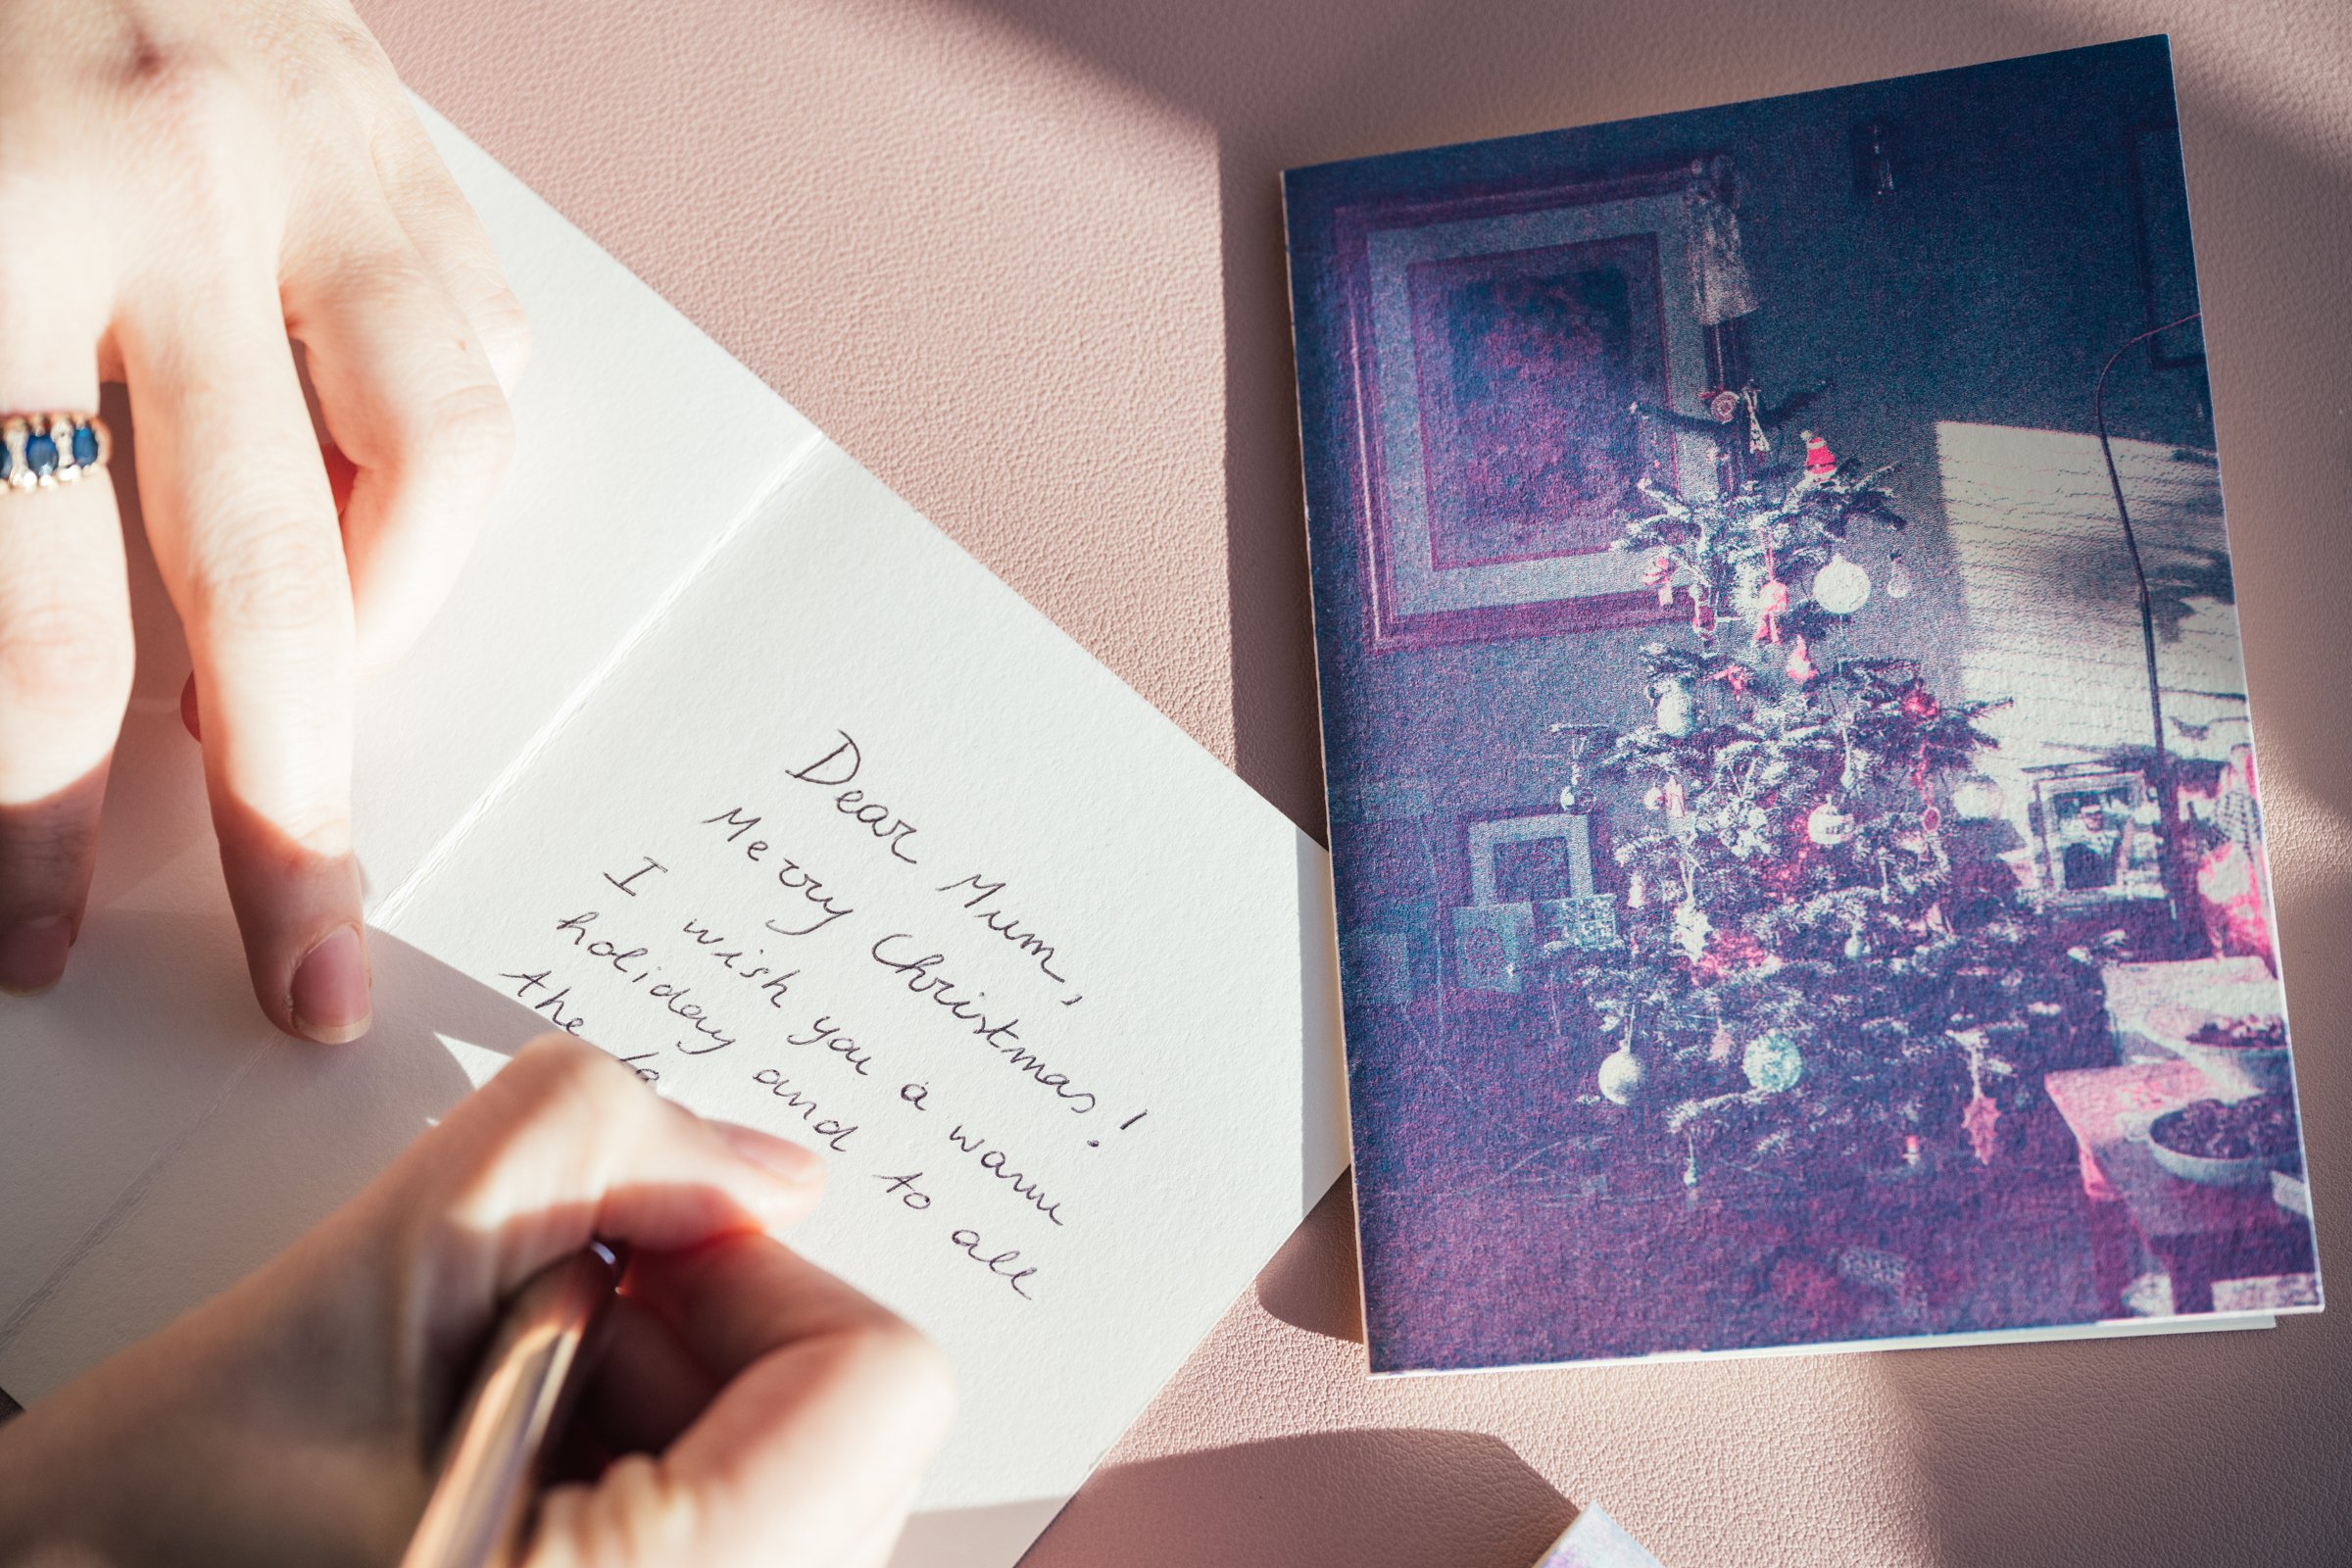 Dear Mum,
Merry Christmas!
I wish you a warm
holiday and to all
the